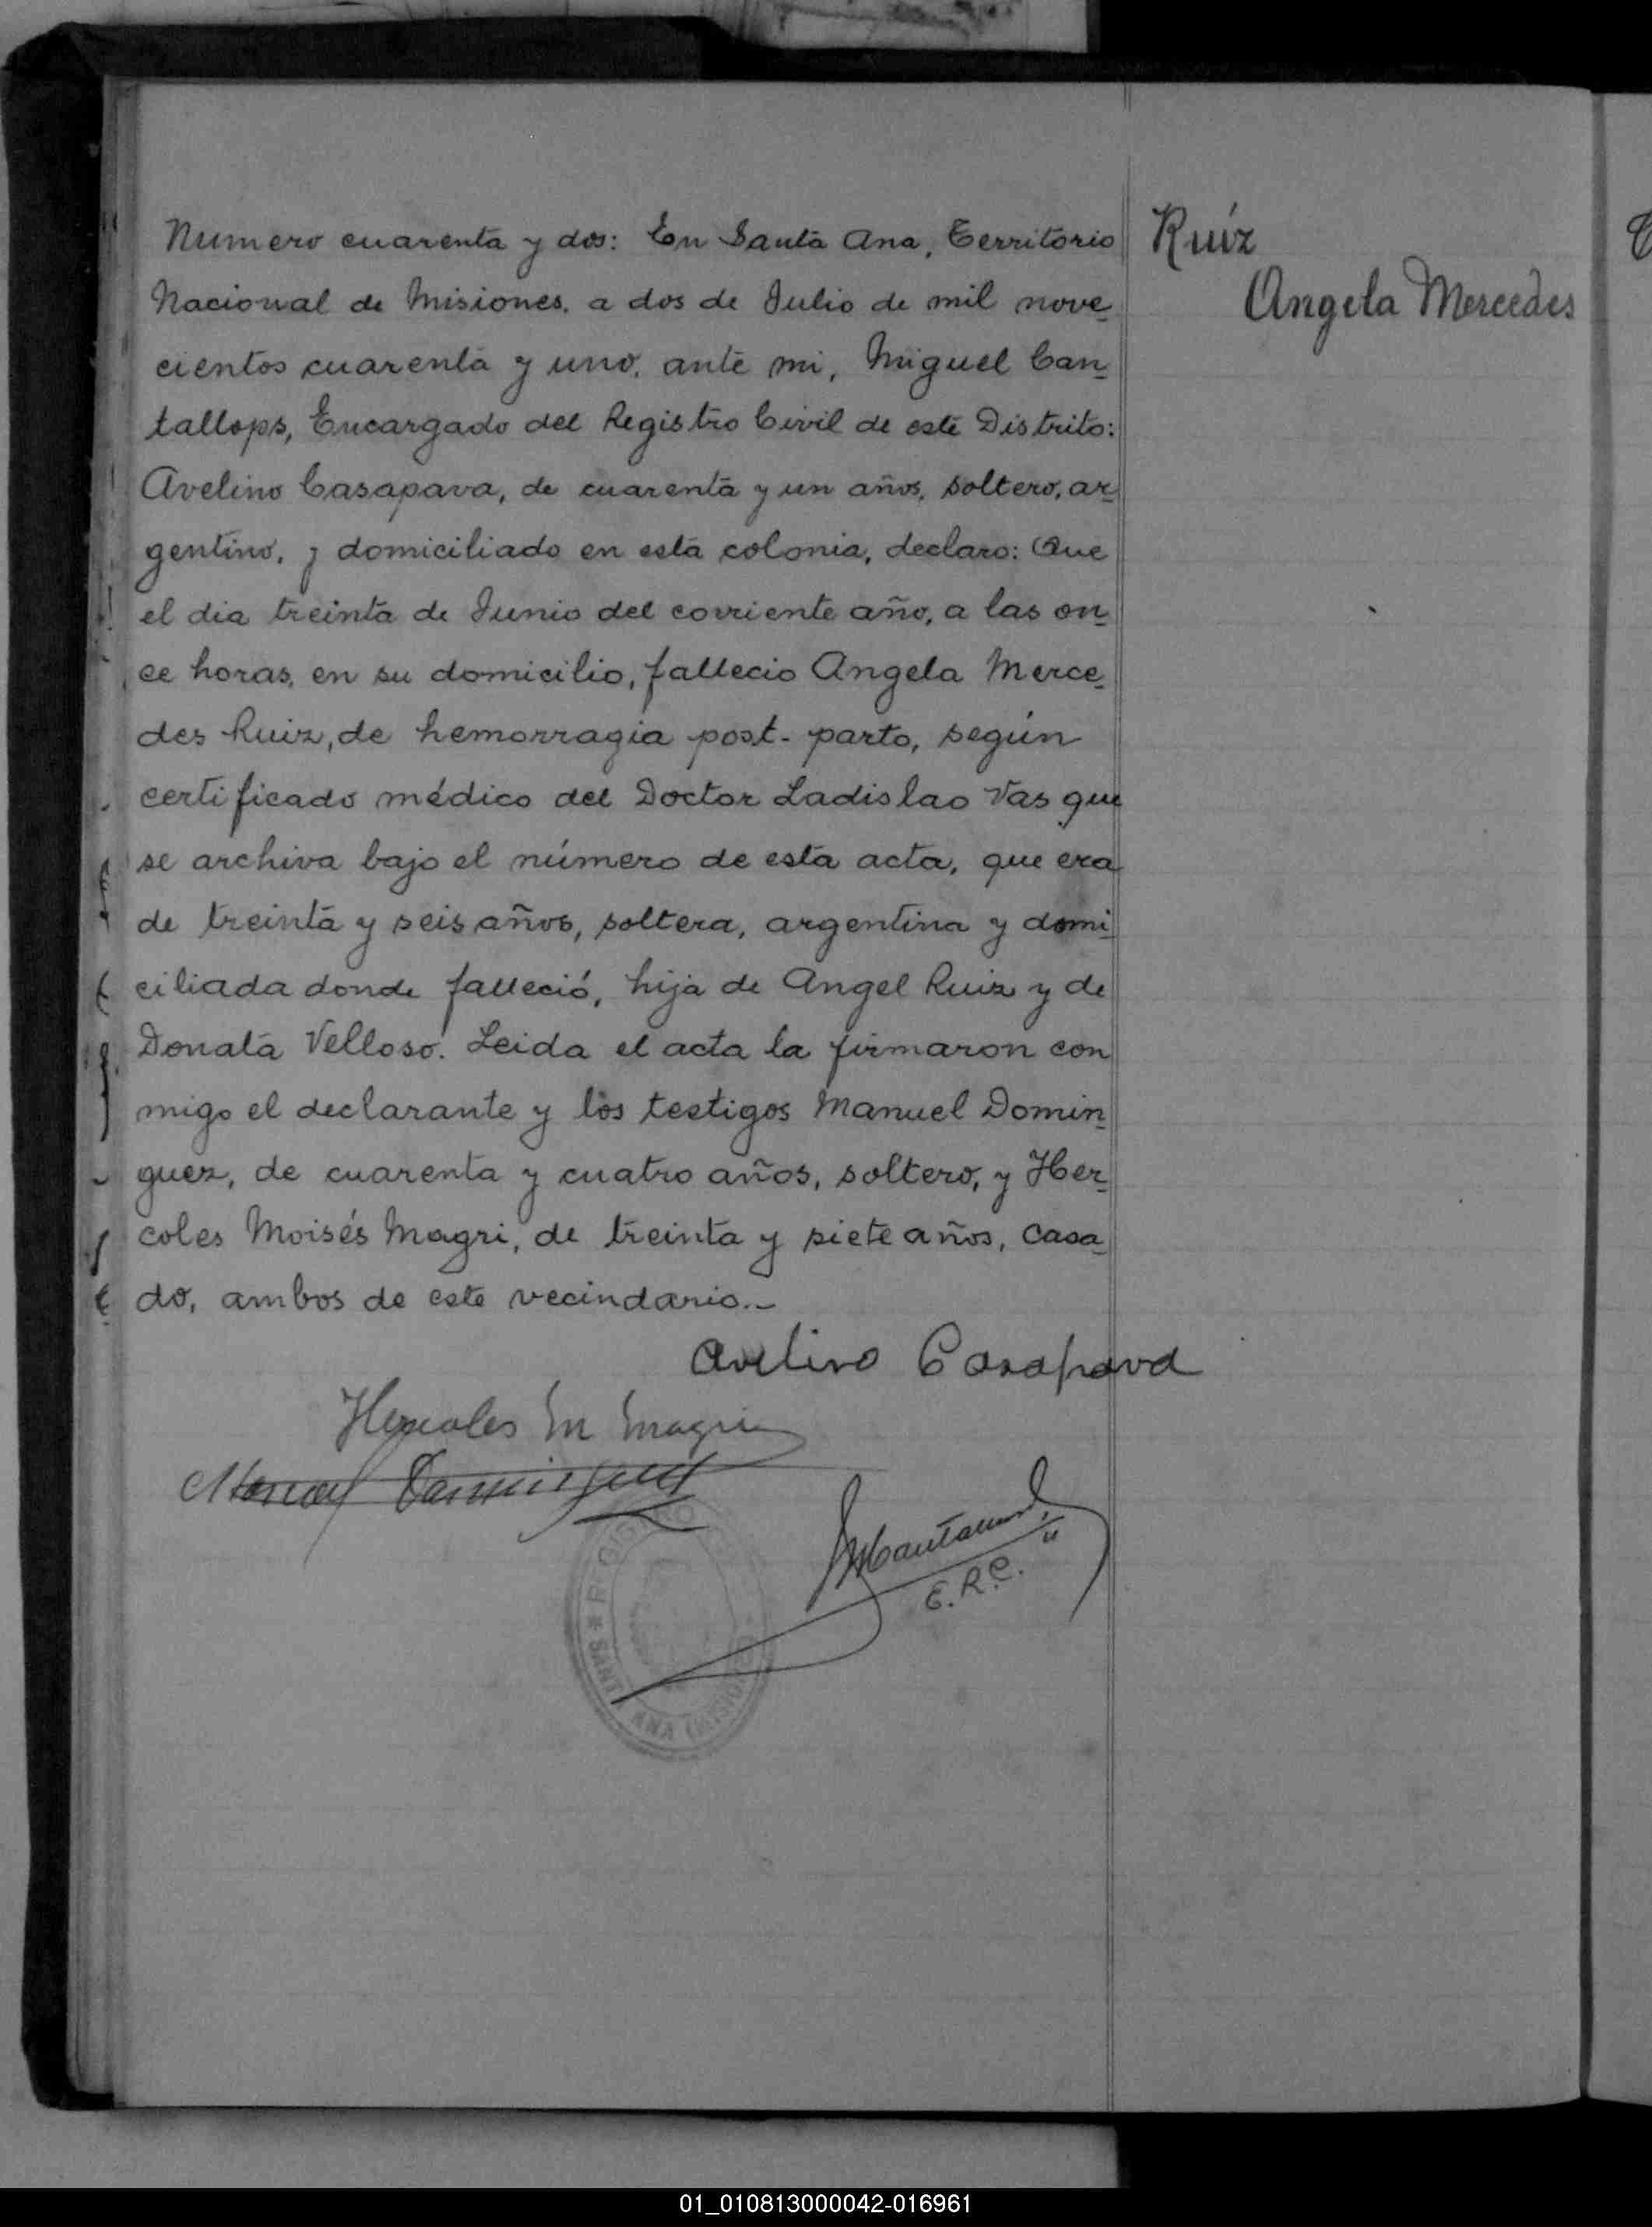 Numero cuarenta y dos: En Santa Ana, Territorio
Nacional de Misiones, a dos de Julio de mil nove-
cientos cuarenta y uno, ante mi, Miguel Can-
tallops, Encargado del Registro Civil de este Distrito:
Avelino Casapava, de cuarenta y un años, soltero, ar-
gentino, y domiciliado en esta colonia, declaro: Que
el dia treinta de Junio del corriente año, a las on-
ce horas, en su domicilio, fallecio Angela Merce-
des Ruiz, de hemorragia post-parto, según
certificado médico del Doctor Ladislao Vas que
se archiva bajo el número de esta acta, que era
de treinta y seis años, soltera, argentina y domi-
ciliada donde falleció, hija de Angel Ruiz y de
Donata Velloso. Leida el acta la firmaron con
migo el declarante y los testigos Manuel Domin-
guez, de cuarenta y cuatro años, soltero, y Her-
coles Moisés Magri, de treinta y siete años, casa-
do, ambos de este vecindario.-
Avelino Casapava
Hercoles M Magri
Manuel Dominguez
E.R.C.
REGISTRO
SANTA ANA (MISIONES)
Ruíz
Angela Mercedes
01_010813000042-016961